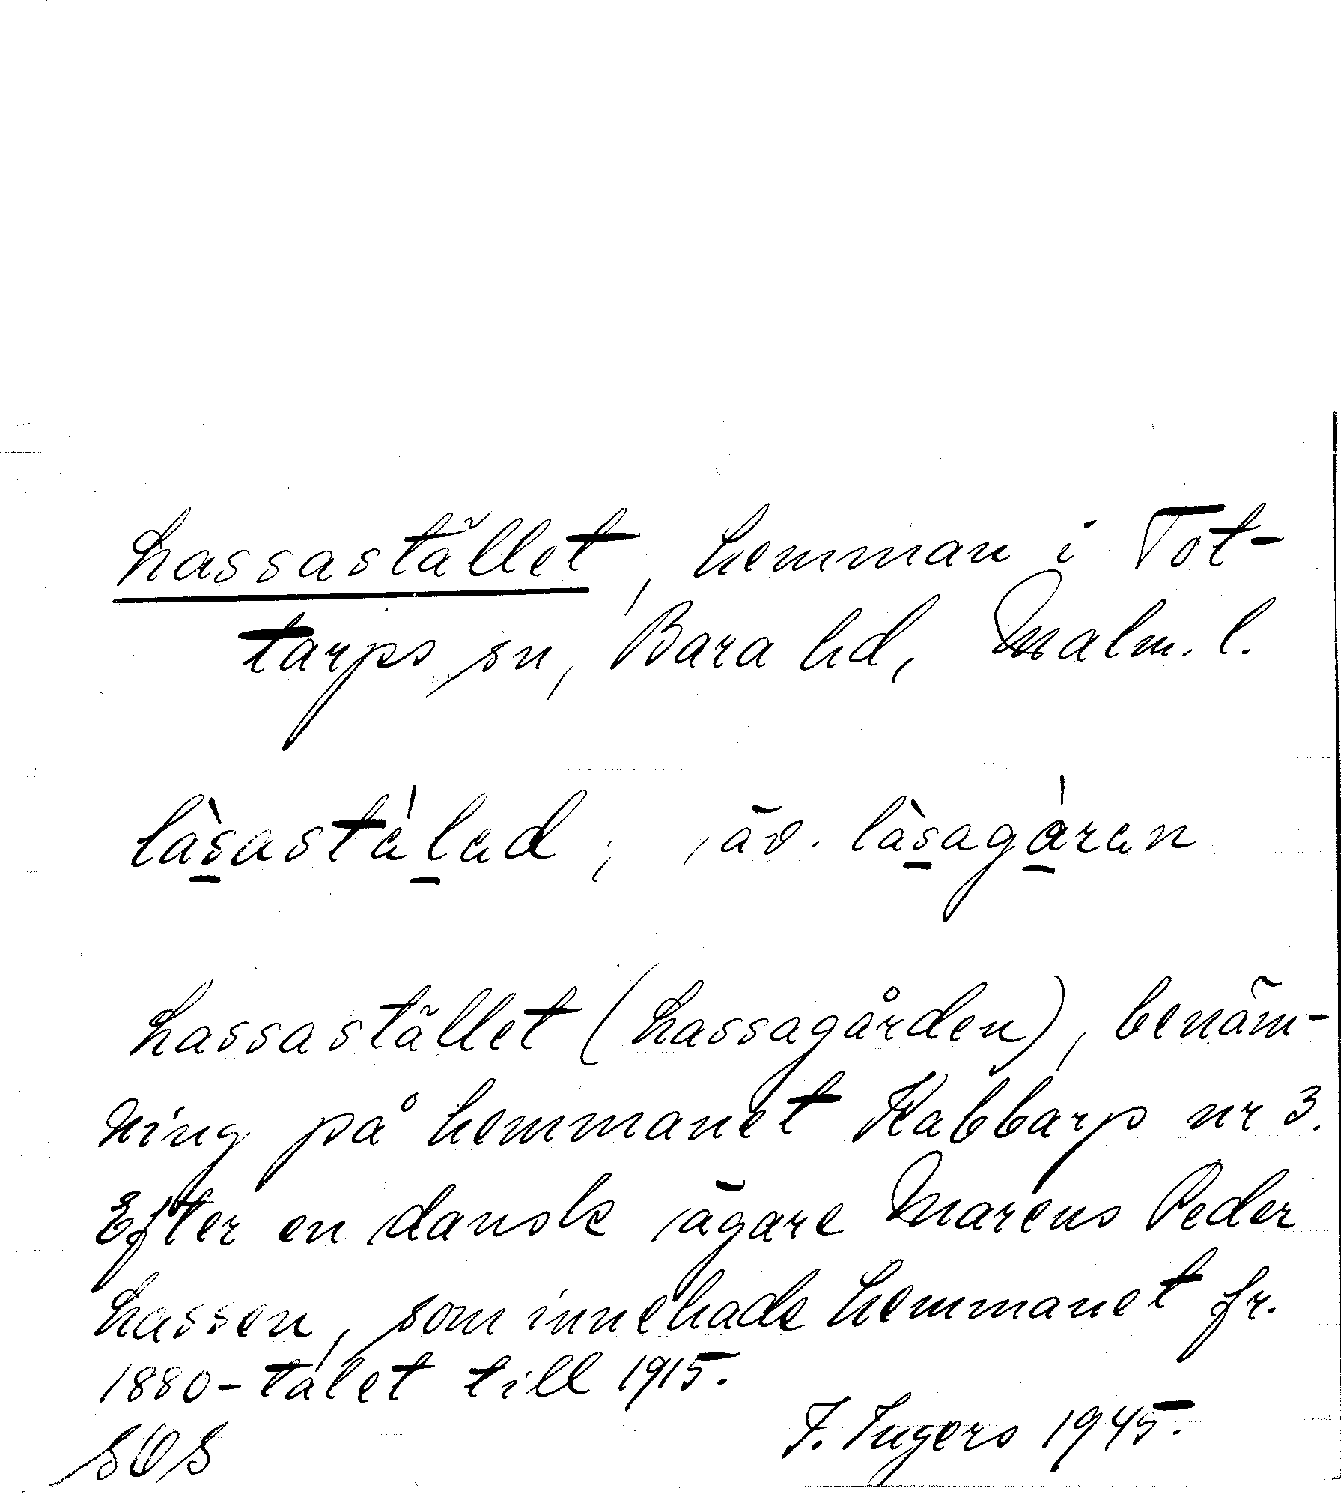 Lassastället, hemman i Tot-
tarps sn, Bara hd, Malm. l.
làsastàlad; äv. làsagàren
Lassastället (Lassagården), benäm-
ning på hemmanet Kabbarp nr 3.
Efter en dansk ägare Marcus Peder
Lassen, som innehade hemmanet fr.
1880-talet till 1915.
I. Ingers 1945.
SOS